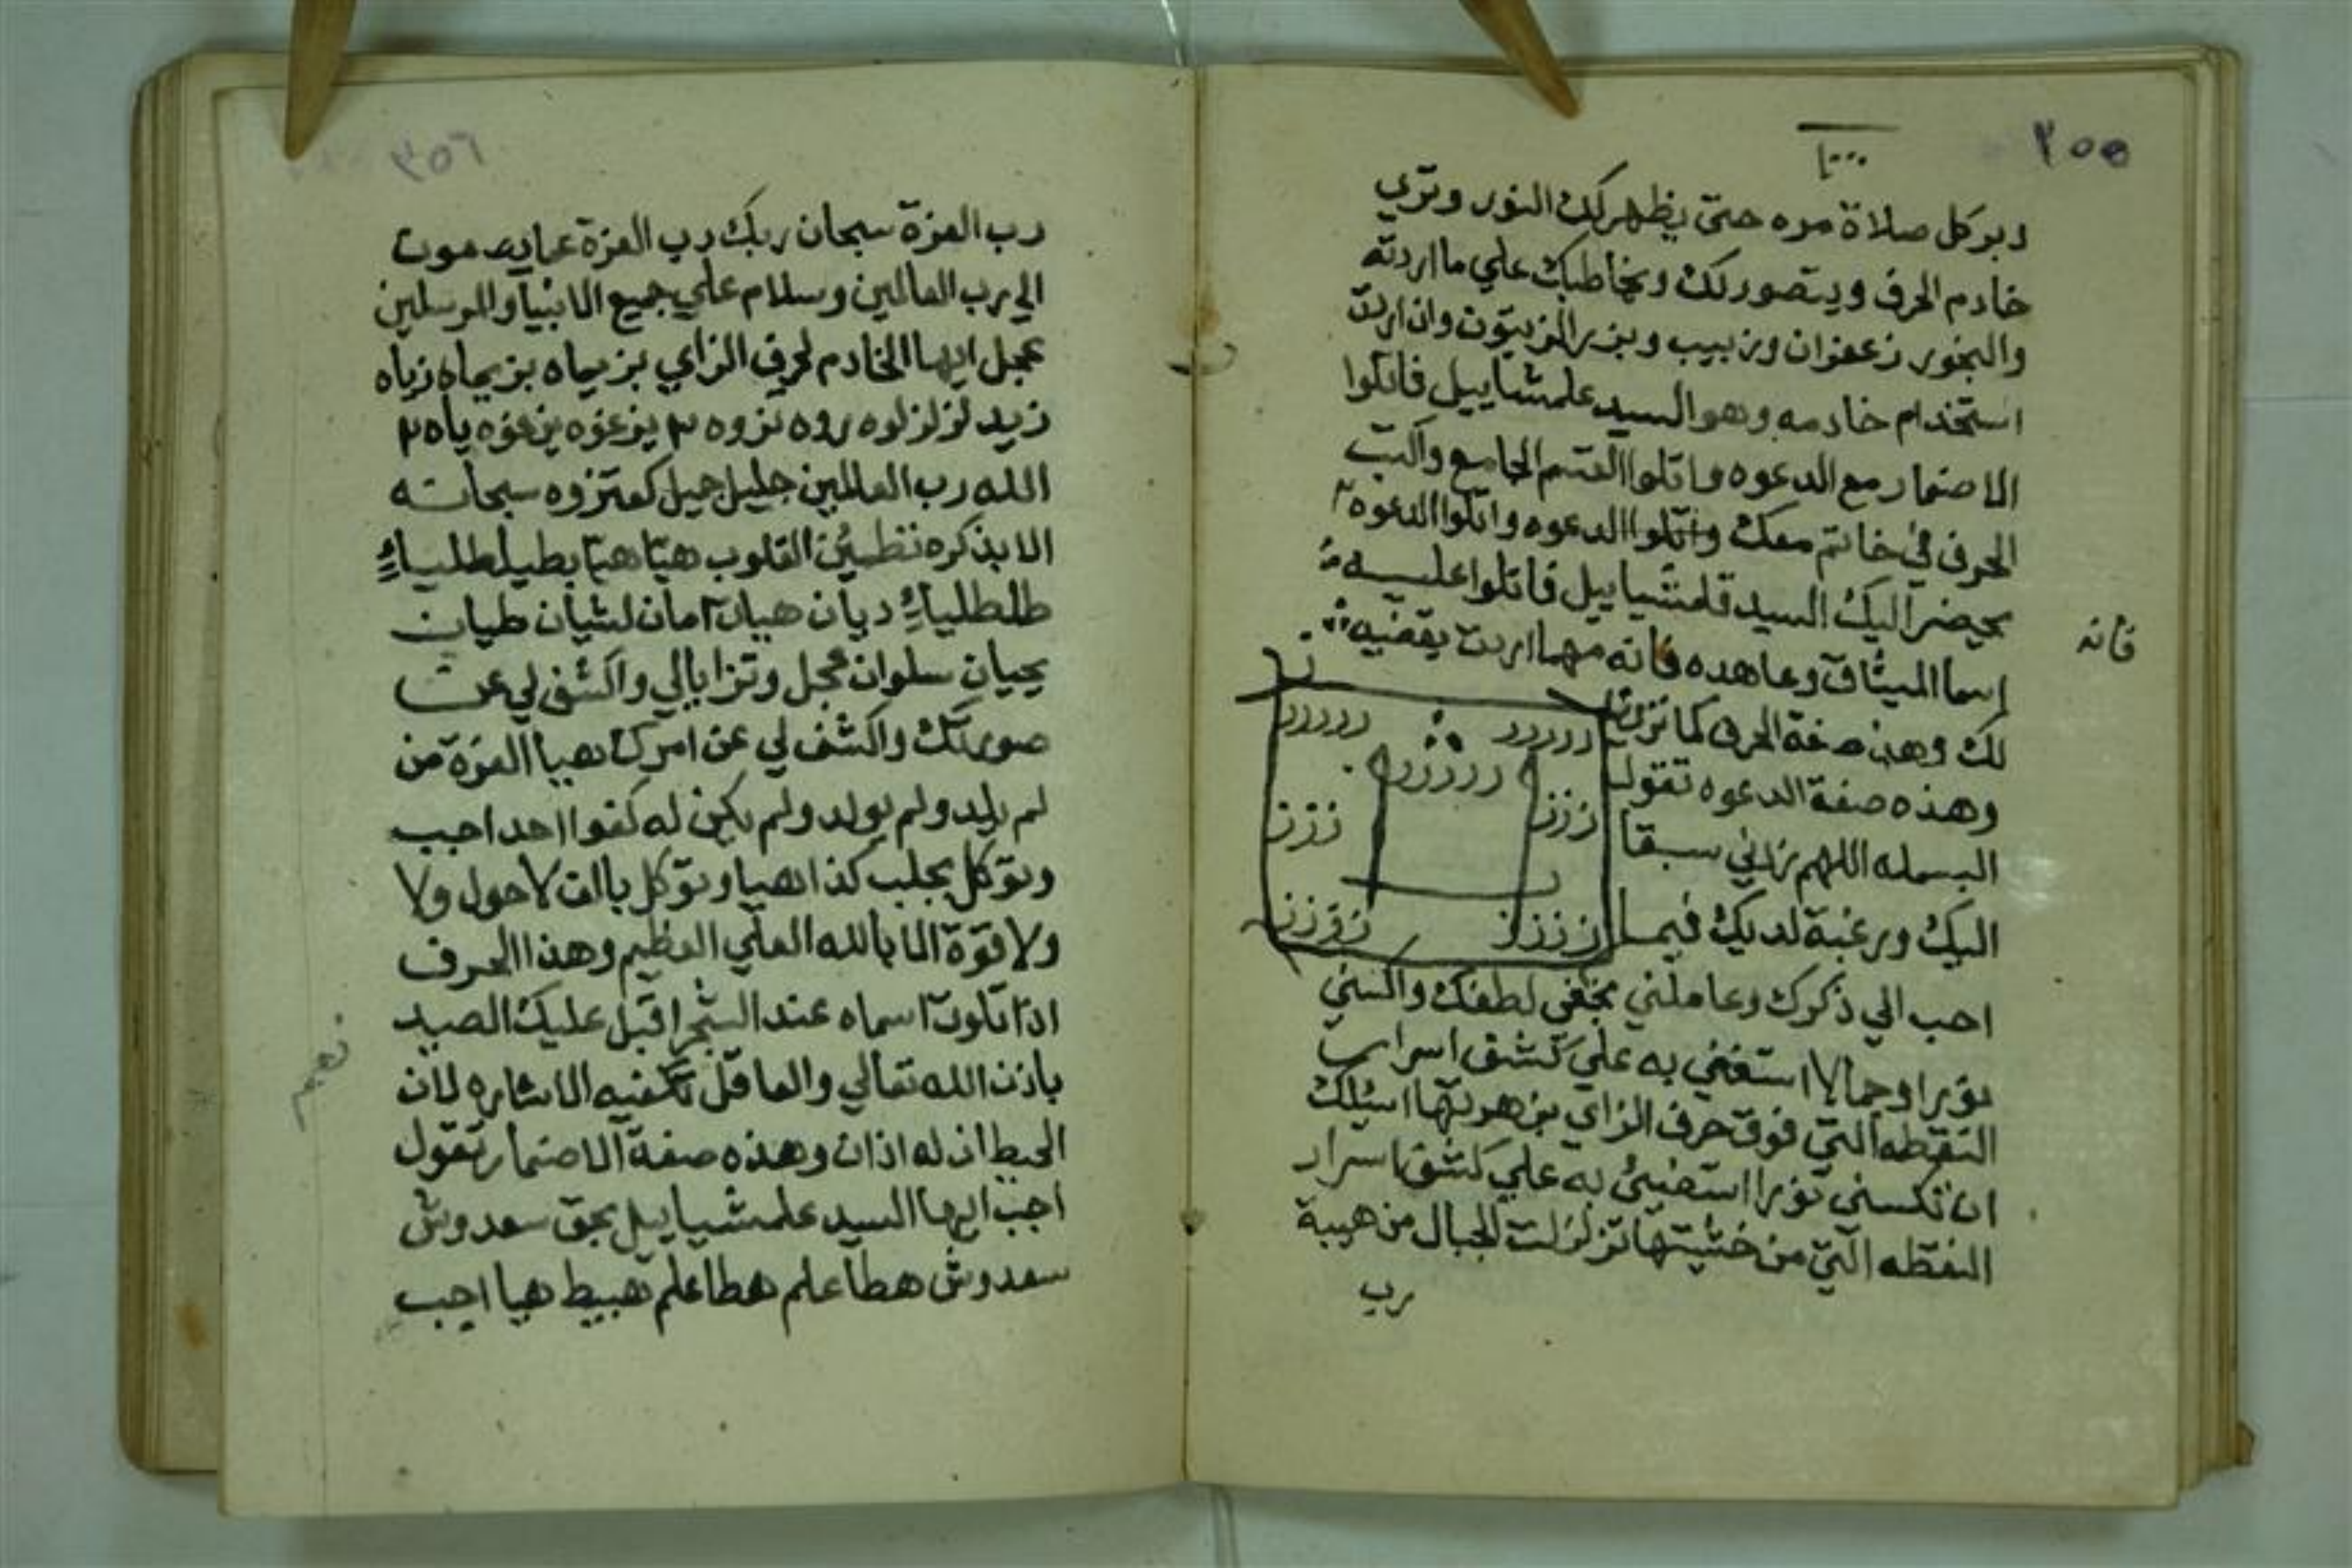 ٢٥٥
دبر كل صلاة مره حتى يظهر لك النور وترى
خادم الحرف ويتصور لك ويخاطبك علي ما اردته
والبخور زعفران وزبيب وبزر الزيتون وان اردت
استخدام خادمه وهو السيد علمشاييل فاتلوا
الاضمار مع الدعوه واتلوا القسم الجامع واكتب
الحرف في خاتم معك واتلوا الدعوه واتلوا الدعوه ٢
يحيضر اليك السيد قلمشياييل فاتلوا عليه
اسما الميثاق وعاهده فانه مهما اردت يقضيه
فانه
لك وهذه صفة الحرف كما ترى
وهذه صفة الدعوه تقول
البسمله اللهم زدني سبقا
اليك ورغبة لديك فيما
ررررر ررررر
ررررر
ززز ززز
زززز زززز
احب الي ذكرك وعاملني بخفي لطفك واكسني
نورا وجمالا استغني به علي كشف اسرار
النقطه التي فوق حرف الزاي بزهوتها اسئلك
ان تكسني نورا استضيئ به علي كشف اسرار
النقطه التي من خشيتها تزلزلت الجبال من هيبة
رب
٢٥٦
رب العزة سبحان ربك رب العزة عما يصفون
الي رب العالمين وسلام علي جميع الانبيآ والمرسلين
عجل ايها الخادم لحرف الزاي بزيحاه بزيحاه زياه
زيد لزلزلوه روه نزوه ٢ يزعزه يزعزه ياه ٢
الله رب العالمين جليل جميل كعتزوه سبحانه
الا بذكره تطمئن القلوب هيا هيا بطيلطلياء
طلطلياء ديان هيان آمان لشيان طيان
يحيان سلوان عجل وتزايالي واكشف لي عن
صورتك واكشف لي عن امرك بهيا العزة من
لم يلد ولم يولد ولم يكن له كفوا احد اجب
وتوكل بجلب كذا هيا وتوكل باالف لا حول ولا
ولا قوة الا بالله العلي العظيم وهذا الحرف
اذا تلوت اسماه عند الشجر اقبل عليك الصيد
باذن الله تعالي والعاقل تكفيه الاشاره لان
الحيط ان له اذان وهذه صفة الاضمار تقول
اجب ايها السيد علمشياييل بحق سعدوش
سعدوش هطا علم هطا علم هبيط هيا اجب